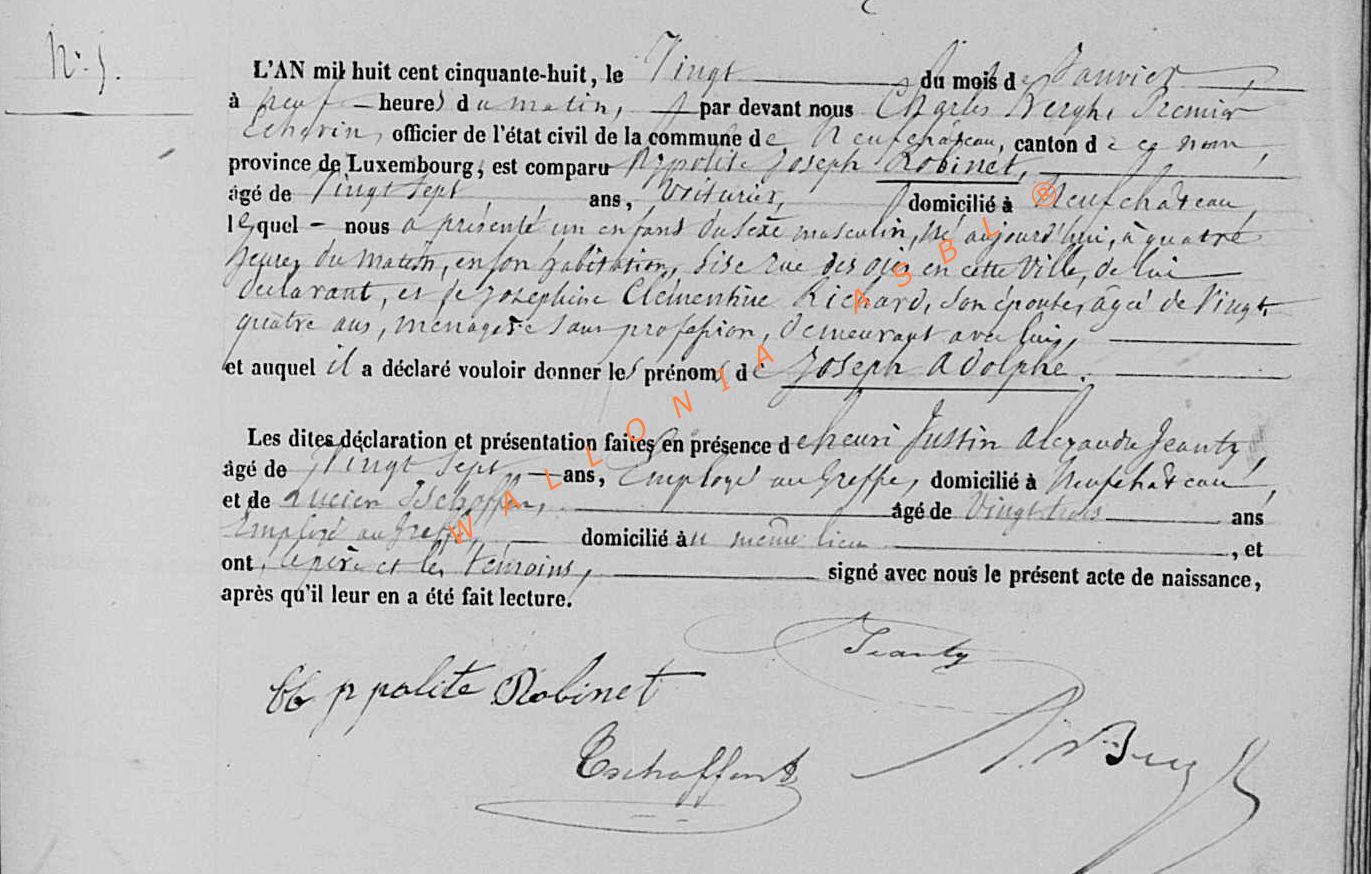 N° 5.
L'AN mil huit cent cinquante-huit, le Vingt du mois de Janvier,
à neuf heures du matin, par devant nous Charles Bergh, Premier
Echevin, officier de l'état civil de la commune de Neufchâteau, canton de ce nom,
province de Luxembourg, est comparu Hyppolite Joseph Robinet,
âgé de Vingt sept ans, Voiturier, domicilié à Neufchâteau,
lequel nous a présenté un enfant du sexe masculin, né aujourd'hui, à quatre
heures du matin, en son habitation, sise rue des oies en cette Ville, de lui
déclarant, et de Joséphine Clémentine Richard, son épouse, âgée de Vingt
quatre ans, ménagère sans profession, demeurant avec lui,
et auquel il a déclaré vouloir donner les prénoms de Joseph Adolphe.
Les dites déclaration et présentation faites en présence de henri Justin Alexandre Jeanty,
âgé de Vingt sept ans, Employé au Greffe, domicilié à Neufchâteau,
et de Lucien Tschoffen, âgé de Vingt trois ans
Employé au Greffe, domicilié au même lieu, et
ont, le père et les témoins, signé avec nous le présent acte de naissance,
après qu'il leur en a été fait lecture.
Jeanty
Hyppolite Robinet
Tschoffen
WALLONIA ASBL ®